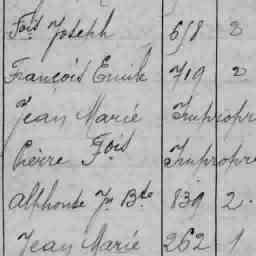 Fois Joseph 658 2
François Emile 719 2
Jean Marie Impropre
Pierre Fois Impropre
Alphonse Jn Bte 839 2.
Jean Marie 262 1